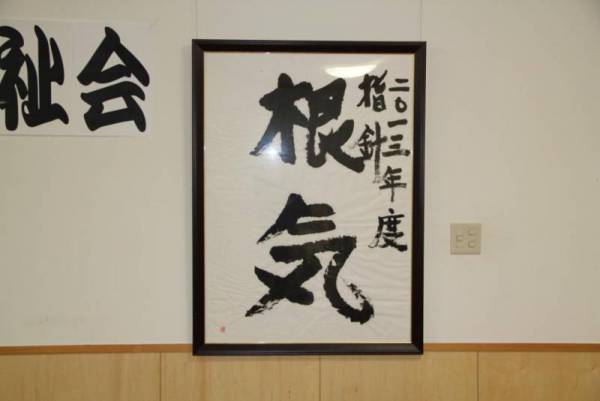 祉会
二〇一三年度
指針
根気